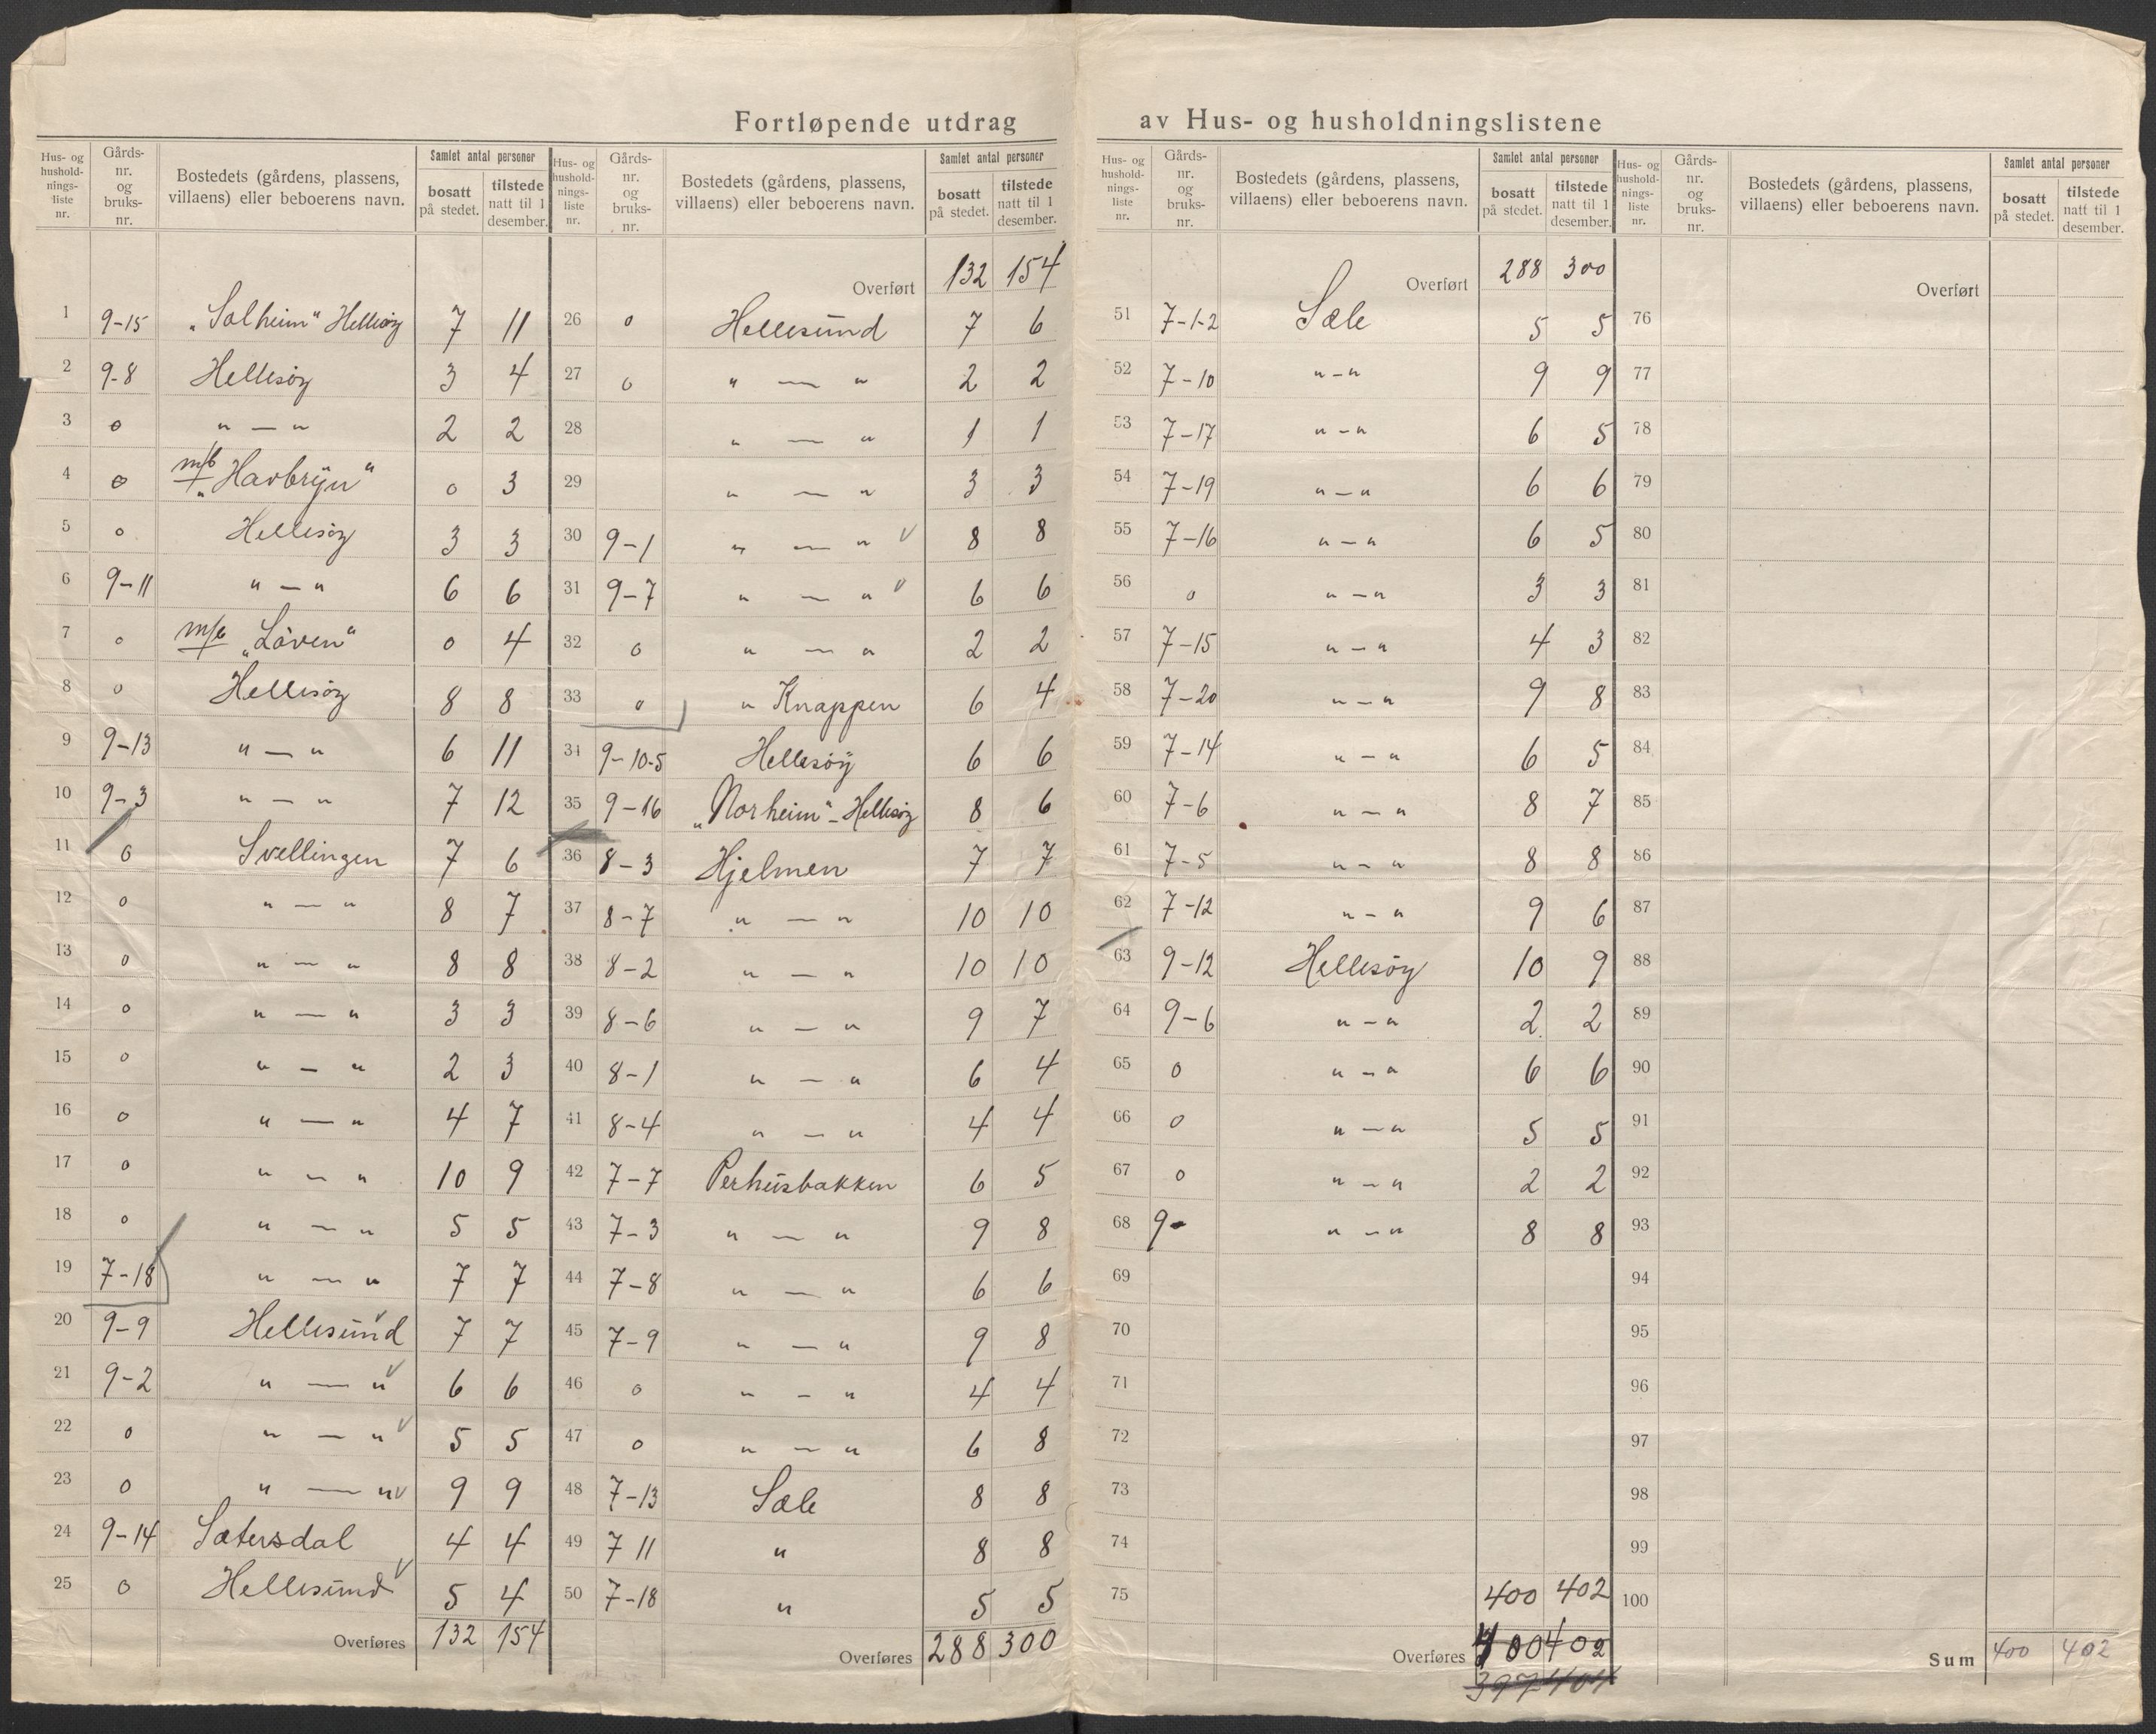 Fortløpende utdrag av Hus- og husholdningslistene
Hus- og hushold-nings-liste nr. | Gårds-nr. og bruks-nr. | Bostedets (gårdens, plassens, villaens) eller beboerens navn. | Samlet antal personer | bosatt på stedet. | tilstede natt til 1 desember.
1 9-15 „Solheim" Hellesöy 7 11
2 9-8 Hellesöy 3 4
3 o " — " 2 2
4 o m/b „Havbryn" 0 3
5 o Hellesöy 3 3
6 9-11 " — " 6 6
7 o m/b „Löven" 0 4
8 o Hellesöy 8 8
9 9-13 " — " 6 11
10 9-3 " — " 7 12
11 o Svellingen 7 6
12 o " — " 8 7
13 o " — " 8 8
14 o " — " 3 3
15 o " — " 2 3
16 o " — " 4 7
17 o " — " 10 9
18 o " — " 5 5
19 7-18 " — " 7 7
20 9-9 Hellesund 7 7
21 9-2 " — " 6 6
22 o " — " 5 5
23 o " — " 9 9
24 9-14 Sætersdal 4 4
25 o Hellesund 5 4
Overføres 132 154
Hus- og hushold-nings-liste nr. | Gårds-nr. og bruks-nr. | Bostedets (gårdens, plassens, villaens) eller beboerens navn. | Samlet antal personer | bosatt på stedet. | tilstede natt til 1 desember.
Overført 132 154
26 o Hellesund 7 6
27 o " — " 2 2
28 " — " 1 1
29 " — " 3 3
30 9-1 " — " 8 8
31 9-7 " — " 6 6
32 o " — " 2 2
33 o " Knappen 6 4
34 9-10-5 Hellesöy 6 6
35 9-16 „Norheim" - Hellesöy 8 6
36 8-3 Hjelmen 7 7
37 8-7 " — " 10 10
38 8-2 " — " 10 10
39 8-6 " — " 9 7
40 8-1 " — " 6 4
41 8-4 " — " 4 4
42 7-7 Perhusbakken 6 5
43 7-3 " — " 9 8
44 7-8 " — " 6 6
45 7-9 " — " 9 8
46 o " — " 4 4
47 o " — " 6 8
48 7-13 Sæle 8 8
49 7 11 " 8 8
50 7-18 " 5 5
Overføres 288 300
Hus- og hushold-nings-liste nr. | Gårds-nr. og bruks-nr. | Bostedets (gårdens, plassens, villaens) eller beboerens navn. | Samlet antal personer | bosatt på stedet. | tilstede natt til 1 desember.
Overført 288 300
51 7-1-2 Sæle 5 5
52 7-10 " — " 9 9
53 7-17 " — " 6 5
54 7-19 " — " 6 6
55 7-16 " — " 6 5
56 o " — " 3 3
57 7-15 " — " 4 3
58 7-20 " — " 9 8
59 7-14 " — " 6 5
60 7-6 " — " 8 7
61 7-5 " — " 8 8
62 7-12 " — " 9 6
63 9-12 Hellesöy 10 9
64 9-6 " — " 2 2
65 o " — " 6 6
66 o " — " 5 5
67 o " — " 2 2
68 9- " — " 8 8
69
70
71
72
73
74
75 400 402
Overføres 400 402
397 404
Hus- og hushold-nings-liste nr. | Gårds-nr. og bruks-nr. | Bostedets (gårdens, plassens, villaens) eller beboerens navn. | Samlet antal personer | bosatt på stedet. | tilstede natt til 1 desember.
Overført
76
77
78
79
80
81
82
83
84
85
86
87
88
89
90
91
92
93
94
95
96
97
98
99
100
Sum 400 402